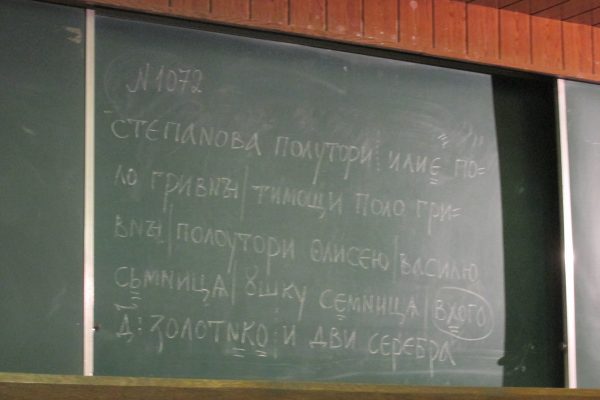 N 1072
СТЕПАNОВА ПОЛУТОРИ | ИЛИЕ ПО=
ЛО ГРИВNꙐ | ТИМОЩИ ПОЛО ГРИ=
ВNꙐ | ПОЛОУТОРИ ѲЛИСЕЮ | ВАСИЛЮ
СЬМNИЦѦ | ꙊШКУ СЕМNИЦѦ | ВХОГО
Д: ЗОЛОТNКО И ДВИ СЕРЕБРА